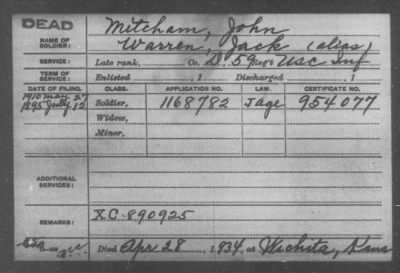 DEAD
NAME OF SOLDIER: Mitcham, John
Warren, Jack (alias)
SERVICE: Late rank, Co. D, 59 Reg't USC Inf
TERM OF SERVICE: Enlisted , 1 Discharged , 1
DATE OF FILING. CLASS. APPLICATION NO. LAW. CERTIFICATE NO.
1910 May 27
1895 July 12 Soldier, 1168782 Jage 954077
Widow,
Minor,
ADDITIONAL SERVICES:
REMARKS: XC-890925
Died Apr 28, 1934, at Wichita, Kans